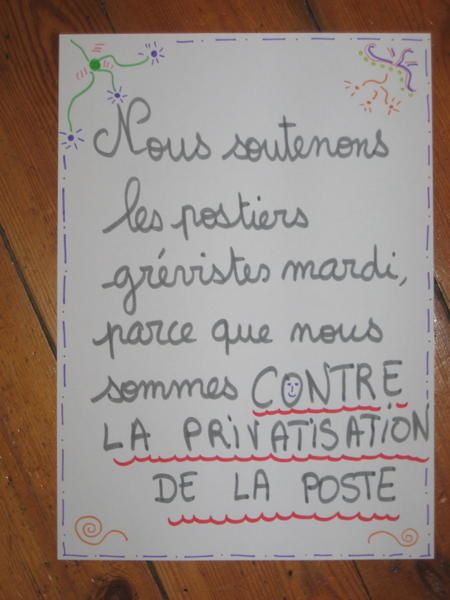 Nous soutenons
les postiers
grévistes mardi,
parce que nous
sommes CONTRE
LA PRIVATISATION
DE LA POSTE